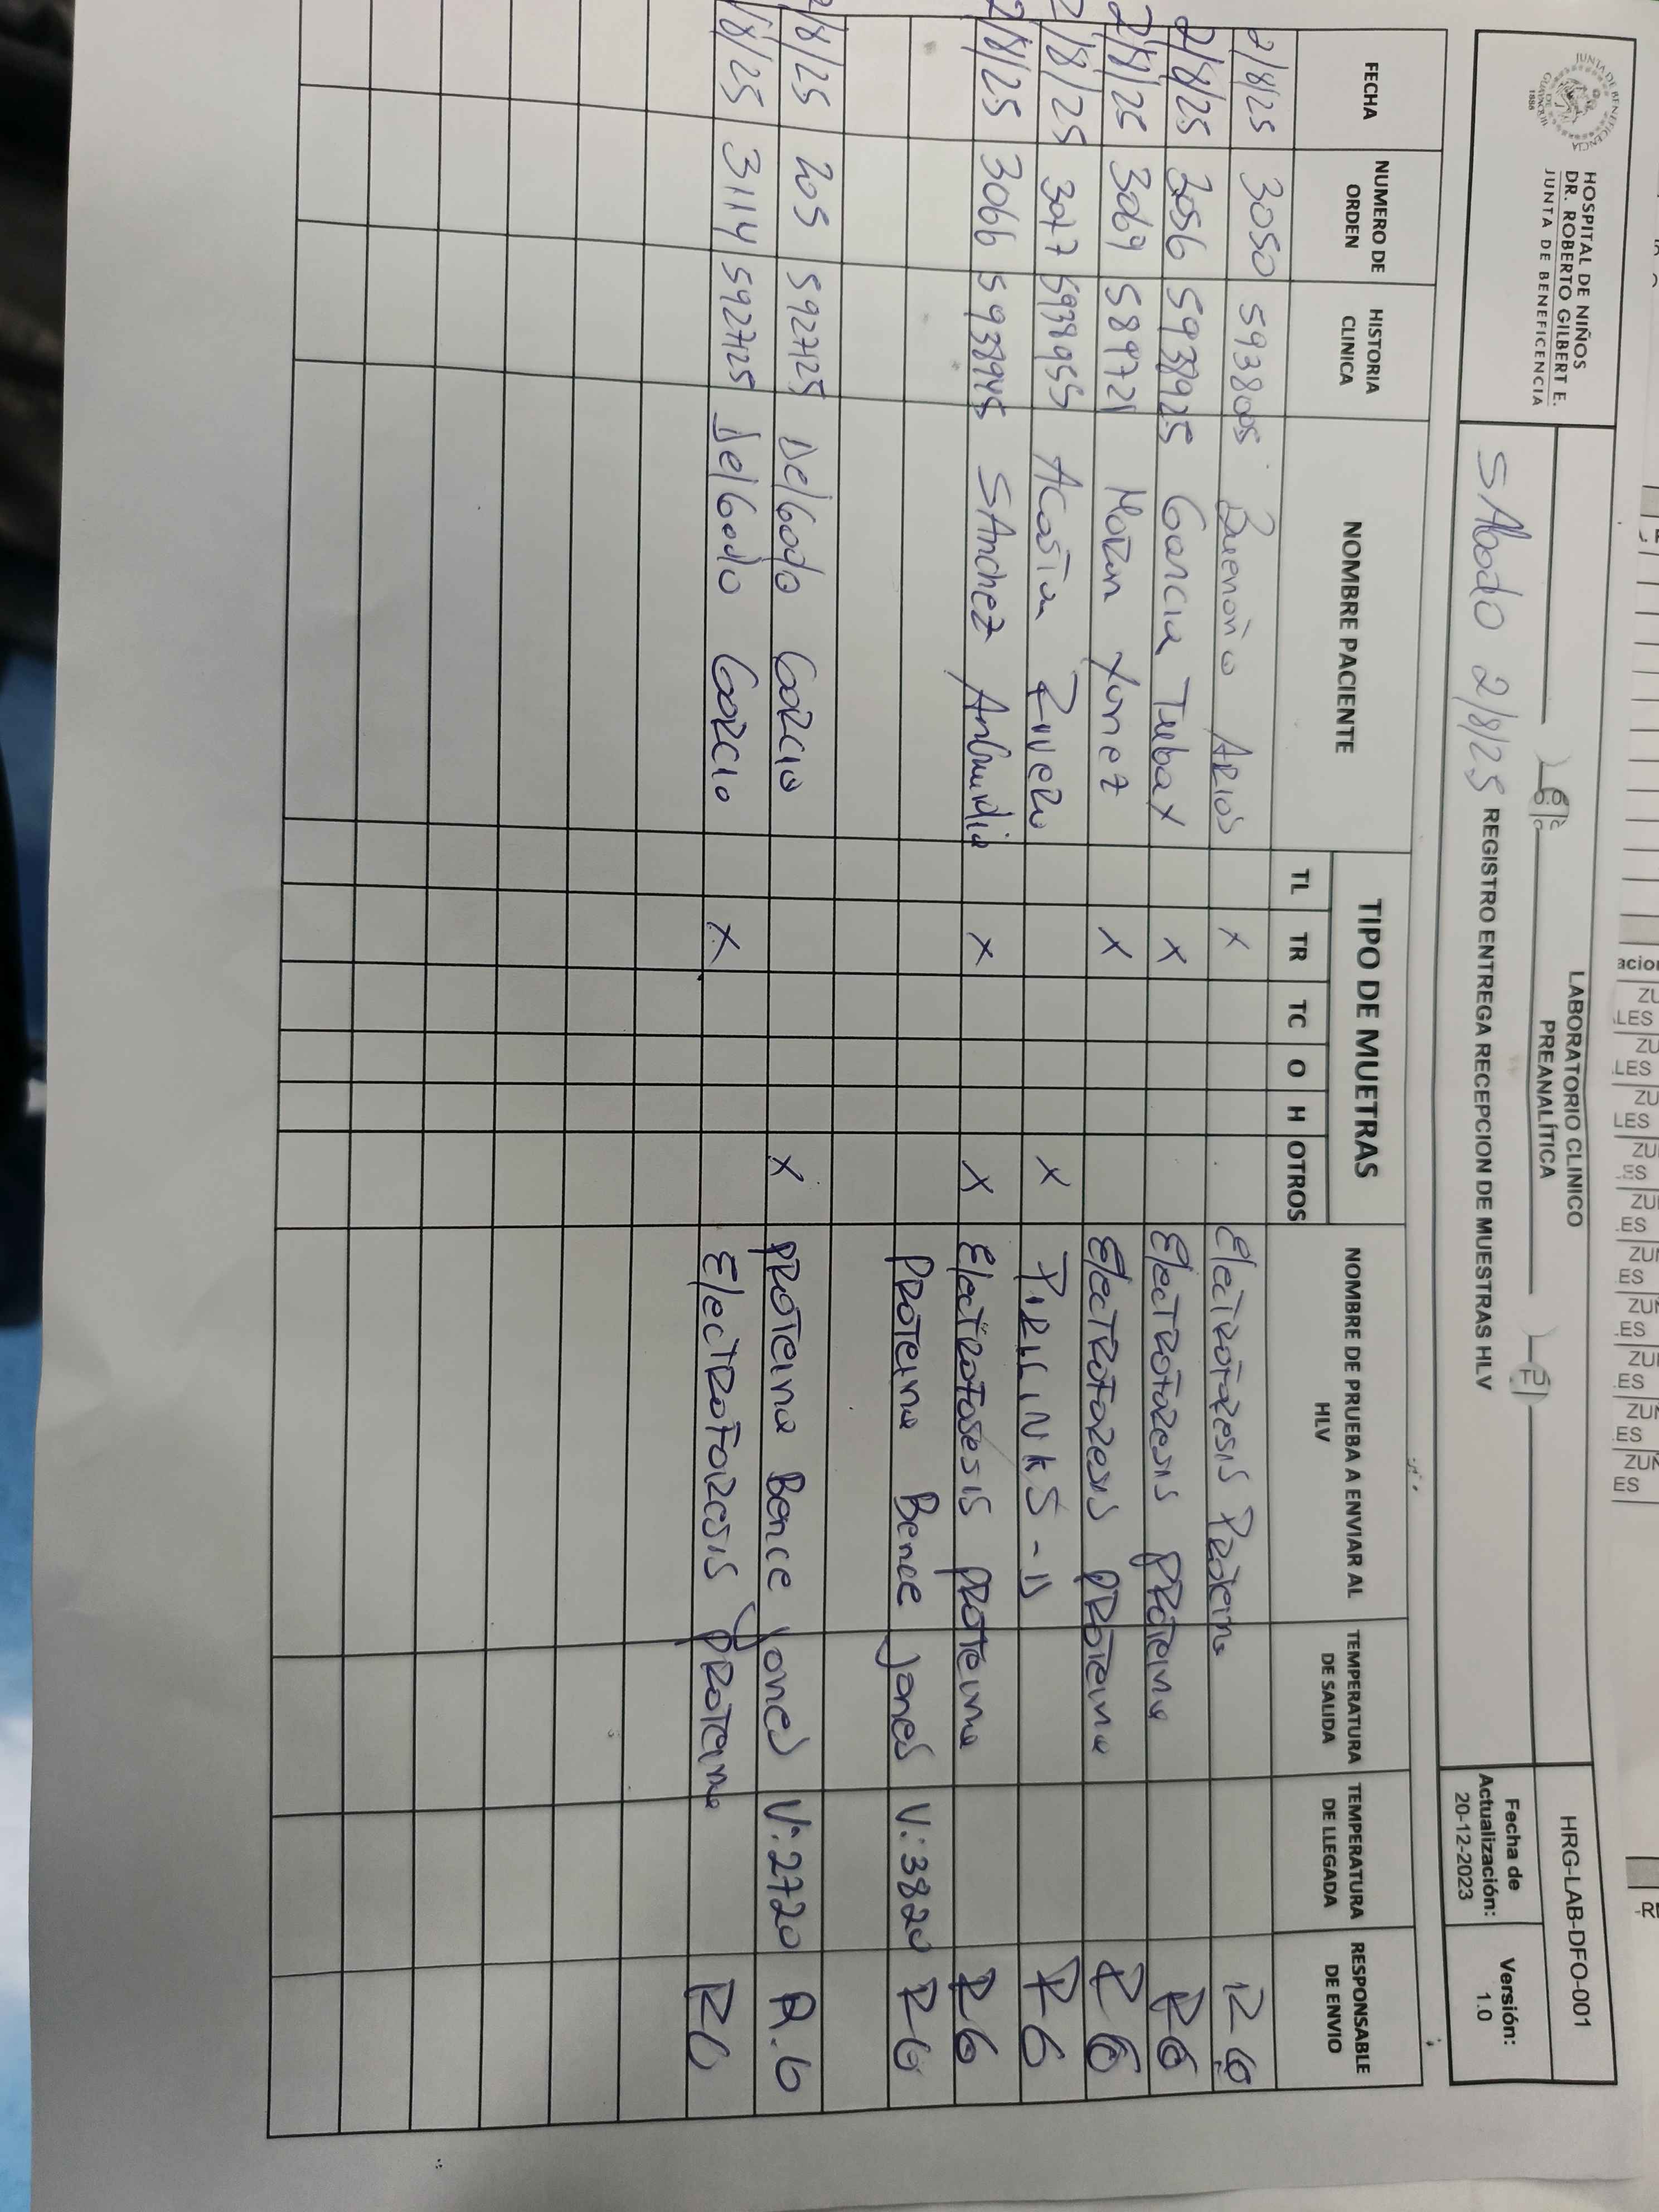 JUNTA DE BENEFICENCIA
1888
HOSPITAL DE NIÑOS
DR. ROBERTO GILBERT E.
JUNTA DE BENEFICENCIA
LABORATORIO CLINICO
PREANALÍTICA
HRG-LAB-DFO-001
SAbado 2/8/25 REGISTRO ENTREGA RECEPCION DE MUESTRAS HLV
Fecha de Actualización: 20-12-2023
Versión: 1.0
FECHA NUMERO DE ORDEN HISTORIA CLINICA NOMBRE PACIENTE TIPO DE MUETRAS NOMBRE DE PRUEBA A ENVIAR AL HLV TEMPERATURA DE SALIDA TEMPERATURA DE LLEGADA RESPONSABLE DE ENVIO
TL TR TC O H OTROS
2/8/25 3050 593805 Buenaño Arios X Electroforesis Proteina RG
2/8/25 3056 5938925 Garcia Tubay X Electroforesis proteina RG
2/8/25 3069 589721 Moran Yunez X Electroforesis proteina RG
2/8/25 3047 5938955 Acosta Rivera X RG
2/8/25 3066 5938945 SAnchez X X Electroforesis proteina RG
proteina Bence Jones V:3820 RG
2/8/25 205 592725 Delgado Garcia X proteina Bence Jones V:2720 R.G
2/8/25 3114 592725 Delgado Garcia X Electroforesis proteina RG